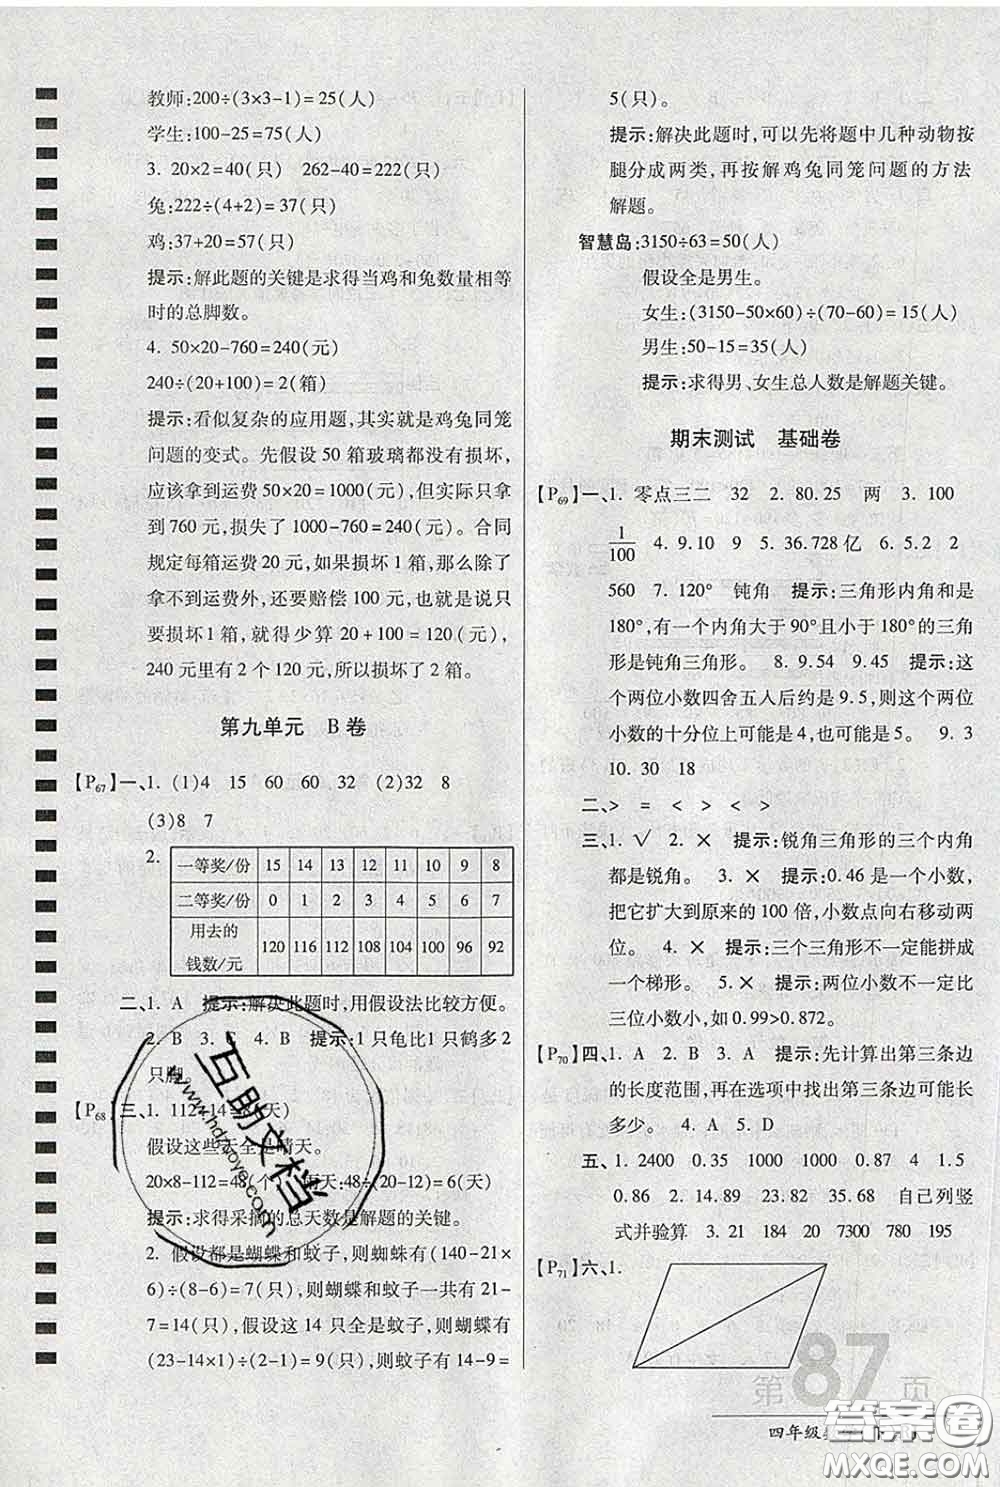 教师:200÷(3×3-1)=25(人)
学生:100-25=75(人)
3. 20×2=40(只) 262-40=222(只)
兔:222÷(4+2)=37(只)
鸡:37+20=57(只)
提示:解此题的关键是求得当鸡和兔数量相等
时的总脚数。
4. 50×20-760=240(元)
240÷(20+100)=2(箱)
提示:看似复杂的应用题,其实就是鸡兔同笼
问题的变式。先假设 50 箱玻璃都没有损坏,
应该拿到运费 50×20=1000(元),但实际只拿
到 760 元,损失了 1000-760=240(元)。合同
规定每箱运费 20 元,如果损坏 1 箱,那么除了
拿不到运费外,还要赔偿 100 元,也就是说只
要损坏 1 箱,就得少算 20+100=120(元),
240 元里有 2 个 120 元,所以损坏了 2 箱。
第九单元 B卷
【P67】一、1. (1)4 15 60 60 32 (2)32 8
(3)8 7
2.
一等奖/份 15 14 13 12 11 10 9 8
二等奖/份 0 1 2 3 4 5 6 7
用去的
钱数/元 120 116 112 108 104 100 96 92
二、1. A 提示:解决此题时,用假设法比较方便。
2. B 3. C 4. B 提示:1只龟比1只鹤多2
只脚。
【P68】三、1. 112÷14=8(天)
假设这些天全是晴天。
20×8-112=48(个) 雨天:48÷(20-12)=6(天)
提示:求得采摘的总天数是解题的关键。
2. 假设都是蝴蝶和蚊子,则蜘蛛有(140-21×
6)÷(8-6)=7(只),则蝴蝶和蚊子一共有 21-
7=14(只),假设这 14 只全是蚊子,则蝴蝶有
(23-14×1)÷(2-1)=9(只),则蚊子有 14-9=
5(只)。
提示:解决此题时,可以先将题中几种动物按
腿分成两类,再按解鸡兔同笼问题的方法
解题。
智慧岛:3150÷63=50(人)
假设全是男生。
女生:(3150-50×60)÷(70-60)=15(人)
男生:50-15=35(人)
提示:求得男、女生总人数是解题关键。
期末测试 基础卷
【P69】一、1. 零点三二 32 2. 80.25 两 3. 100
1/100 4. 9.10 9 5. 36.728 亿 6. 5.2 2
560 7. 120° 钝角 提示:三角形内角和是
180°,有一个内角大于 90°且小于 180°的三角
形是钝角三角形。 8. 9.54 9.45 提示:这
个两位小数四舍五入后约是 9.5,则这个两位
小数的十分位上可能是 4,也可能是 5。 9. 3
10. 30 18
二、> = < > < >
三、1. √ 2. × 提示:锐角三角形的三个内角
都是锐角。 3. × 提示:0.46 是一个小数,
把它扩大到原来的 100 倍,小数点向右移动两
位。 4. × 提示:三个三角形不一定能拼成
一个梯形。 5. × 提示:两位小数不一定比
三位小数小,如 0.99>0.872。
【P70】四、1. A 2. B 3. A 提示:先计算出第三条边
的长度范围,再在选项中找出第三条边可能长
多少。 4. A 5. D
五、1. 2400 0.35 1000 1000 0.87 4 1.5
0.86 2. 14.89 22.15 96.75 自己列竖
式并验算 3. 21 184 20 7300 780 195
【P71】六、1.
第87页
四年级
互助文档
www.hdzuoye.com
答案圈
MXQE.COM